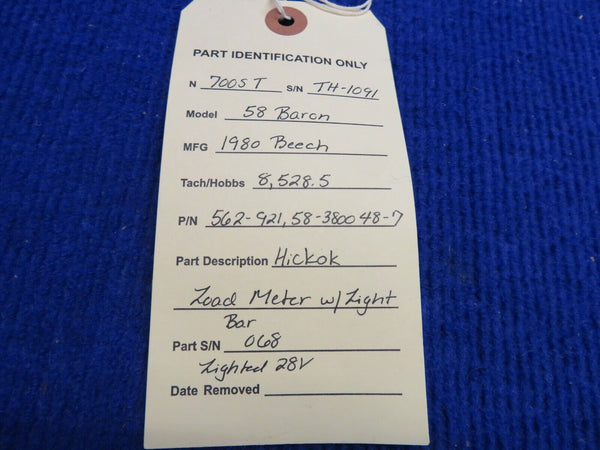 PART IDENTIFICATION ONLY
N 700ST S/N TH-1091
Model 58 Baron
MFG 1980 Beech
Tach/Hobbs 8,528.5
P/N 562-921, 58-380048-7
Part Description Hickok
Load Meter w/Light
Bar
Part S/N 068
Lighted 28V
Date Removed